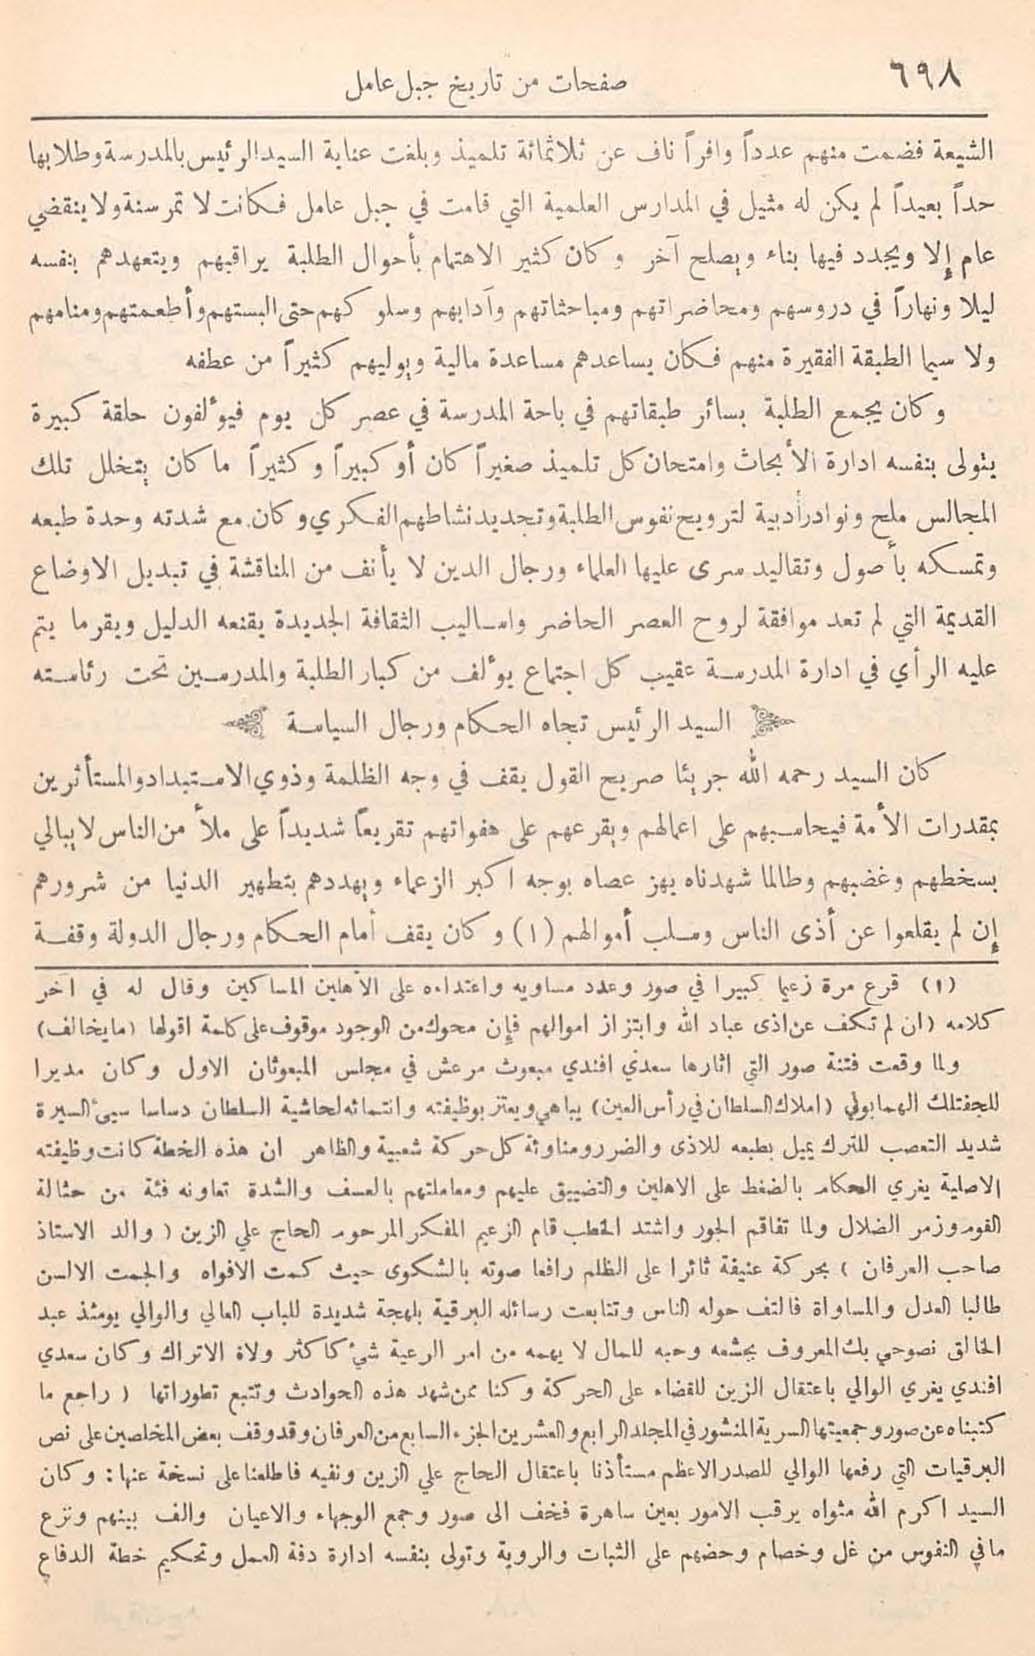 ٦٩٨
صفحات من تاريخ جبل عامل
الشيعة فضمت منهم عدداً وافراً ناف عن ثلاثمائة تلميذ وبلغت عناية السيد الرئيس بالمدرسة وطلابها
حداً بعيداً لم يكن له مثيل في المدارس العلمية التي قامت في جبل عامل فكانت لا تمر سنة ولا ينقضي
عام إلا ويجدد فيها بناء ويصلح آخر وكان كثير الاهتمام بأحوال الطلبة يراقبهم ويتعهدهم بنفسه
ليلا ونهاراً في دروسهم ومحاضراتهم ومباحثاتهم وآدابهم وسلوكهم حتى البستهم وأطعمتهم ومنامهم
ولا سيما الطبقة الفقيرة منهم فكان يساعدهم مساعدة مالية ويوليهم كثيراً من عطفه
وكان يجمع الطلبة بسائر طبقاتهم في باحة المدرسة في عصر كل يوم فيؤلفون حلقة كبيرة
يتولى بنفسه ادارة الأبحاث وامتحان كل تلميذ صغيراً كان أو كبيراً وكثيراً ما كان يتخلل تلك
المجالس ملح ونوادر أدبية لترويح نفوس الطلبة وتجديد نشاطهم الفكري وكان مع شدته وحدة طبعه
وتمسكه بأصول وتقاليد سرى عليها العلماء ورجال الدين لا يأنف من المناقشة في تبديل الاوضاع
القديمة التي لم تعد موافقة لروح العصر الحاضر واساليب الثقافة الجديدة يقنعه الدليل ويقر ما يتم
عليه الرأي في ادارة المدرسة عقيب كل اجتماع يؤلف من كبار الطلبة والمدرسين تحت رئاسته
السيد الرئيس تجاه الحكام ورجال السياسة
كان السيد رحمه الله جريئا صريح القول يقف في وجه الظلمة وذوي الاستبداد والمستأثرين
بمقدرات الأمة فيحاسبهم على اعمالهم ويقرعهم على هفواتهم تقريعاً شديداً على ملأ من الناس لا يبالي
بسخطهم وغضبهم وطالما شهدناه يهز عصاه بوجه اكبر الزعماء ويهددهم بتطهير الدنيا من شرورهم
إن لم يقلعوا عن أذى الناس وسلب أموالهم (١) وكان يقف أمام الحكام ورجال الدولة وقفة
(١) قرع مرة زعيما كبيرا في صور وعدد مساويه واعتداءه على الاهلين المساكين وقال له في آخر
كلامه (ان لم تكف عن اذى عباد الله وابتزاز اموالهم فإن محوك من الوجود موقوف على كلمة اقولها (ما يخالف)
ولما وقعت فتنة صور التي اثارها سعدي افندي مبعوث مرعش في مجلس المبعوثان الاول وكان مديرا
للجفتلك الهمايوني (املاك السلطان في رأس العين) يباهي ويعتز بوظيفته وانتمائه لحاشية السلطان دساسا سيئ السيرة
شديد التعصب للترك يميل بطبعه للاذى والضرر ومناوئة كل حركة شعبية والظاهر ان هذه الخطة كانت وظيفته
الاصلية يغري الحكام بالضغط على الاهلين والتضييق عليهم ومعاملتهم بالعسف والشدة تعاونه فئة من حثالة
القوم وزمر الضلال ولما تفاقم الجور واشتد الخطب قام الزعيم المفكر المرحوم الحاج علي الزين (والد الاستاذ
صاحب العرفان) بحركة عنيفة ثائرا على الظلم رافعا صوته بالشكوى حيث كمت الافواه والجمت الالسن
طالبا العدل والمساواة فالتف حوله الناس وتتابعت رسائله البرقية بلهجة شديدة للباب العالي والوالي يومئذ عبد
الخالق نصوحي بك المعروف بجشعه وحبه للمال لا يهمه من امر الرعية شيء كاكثر ولاة الاتراك وكان سعدي
افندي يغري الوالي باعتقال الزين للقضاء على الحركة وكنا ممن شهد هذه الحوادث وتتبع تطوراتها (راجع ما
كتبناه عن صور وجمعيتها السرية المنشور في المجلد الرابع والعشرين الجزء السابع من العرفان وقد وقف بعض المخلصين على نص
البرقيات التي رفعها الوالي للصدر الاعظم مستأذنا باعتقال الحاج علي الزين ونفيه فاطلعنا على نسخة عنها: وكان
السيد اكرم الله مثواه يرقب الامور بعين ساهرة فخف الى صور وجمع الوجهاء والاعيان والف بينهم ونزع
ما في النفوس من غل وخصام وحضهم على الثبات والروية وتولى بنفسه ادارة دفة العمل وتحكيم خطة الدفاع